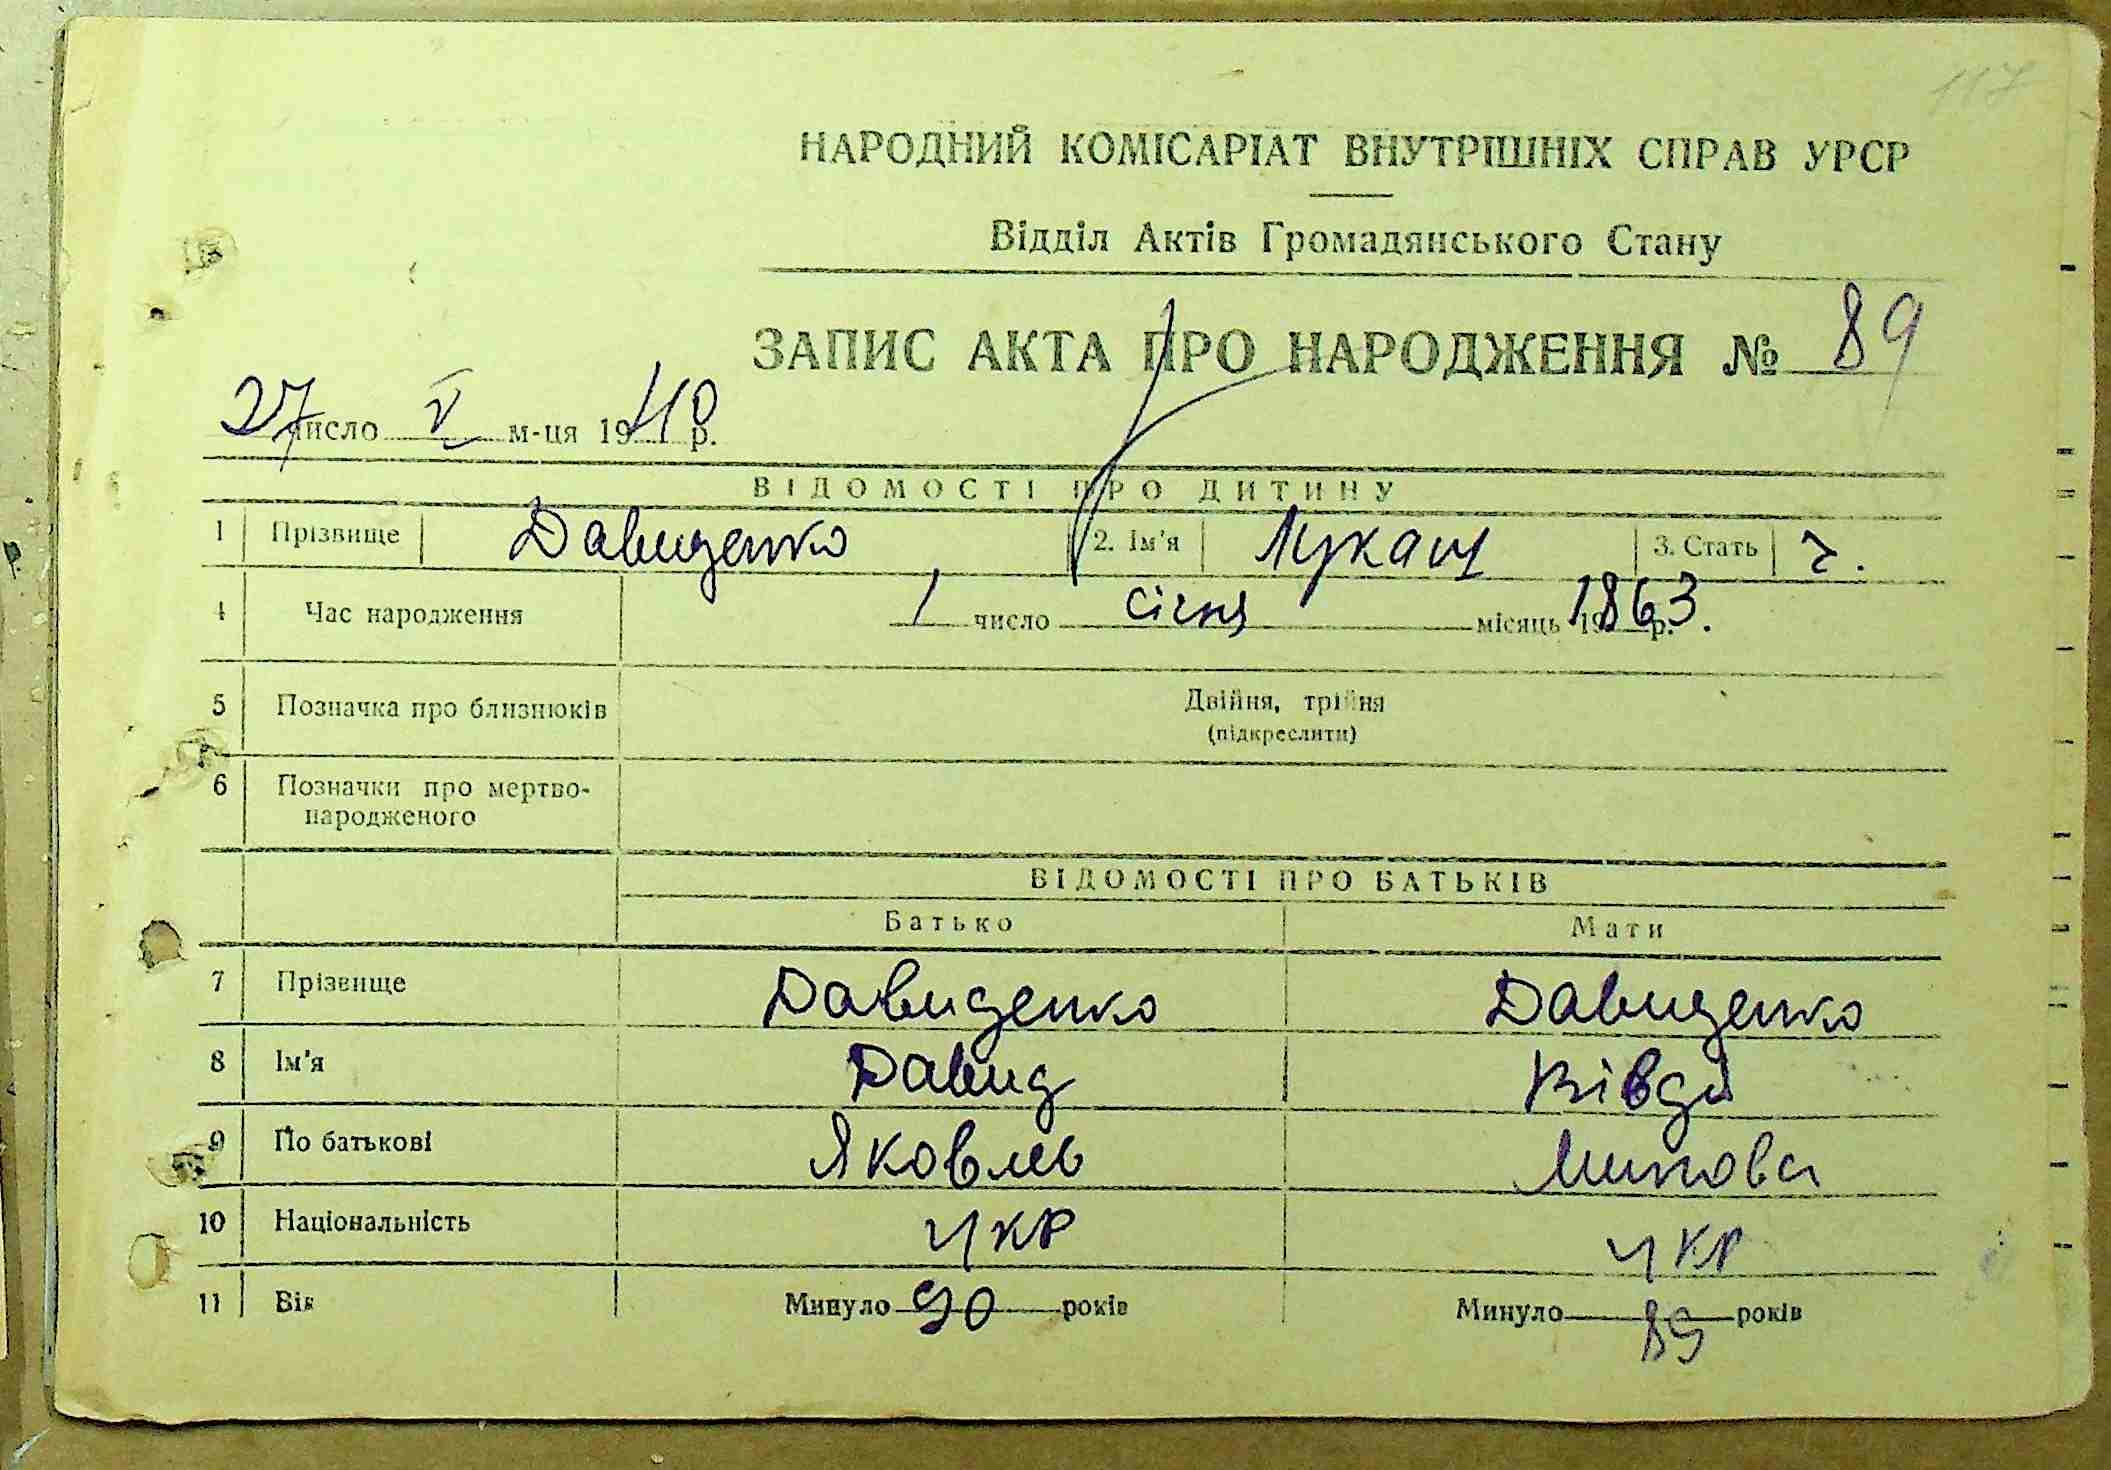 117
НАРОДНИЙ КОМІСАРІАТ ВНУТРІШНІХ СПРАВ УРСР
Відділ Актів Громадянського Стану
ЗАПИС АКТА ПРО НАРОДЖЕННЯ № 89
27 число V м-ця 1940 р.
ВІДОМОСТІ ПРО ДИТИНУ
1 Прізвище Давиденко 2. Ім'я Лукаш 3. Стать ч.
4 Час народження 1 число січня місяць 1863 р.
5 Позначка про близнюків Двійня, трійня
(підкреслити)
6 Позначки про мертво-
народженого
ВІДОМОСТІ ПРО БАТЬКІВ
Батько Мати
7 Прізвище Давиденко Давиденко
8 Ім'я Давид Вівдя
9 По батькові Яковлев
10 Національність укр укр
11 Вік Минуло 90 років Минуло 89 років